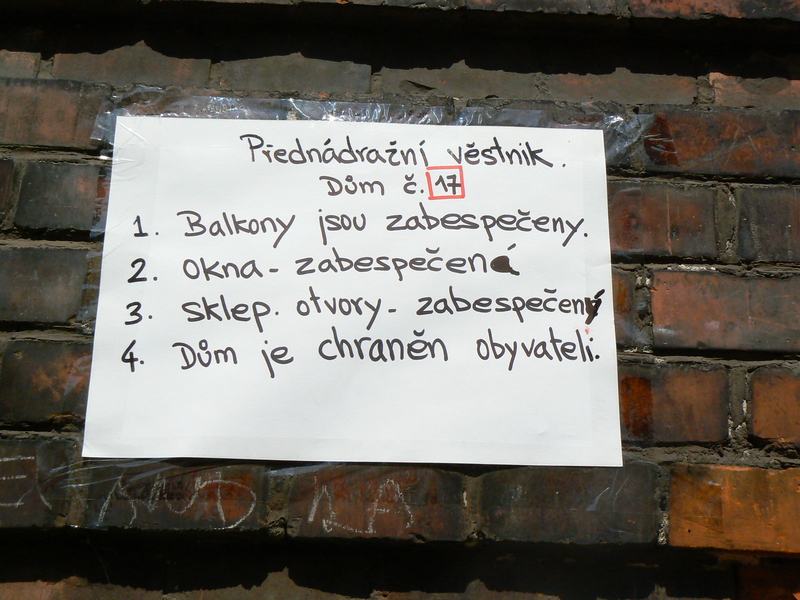 Přednádražní věstnik.
Dům č. 17
1. Balkony jsou zabespečeny.
2. okna - zabespečená
3. sklep. otvory - zabespečený
4. Dům je chraněn obyvateli.